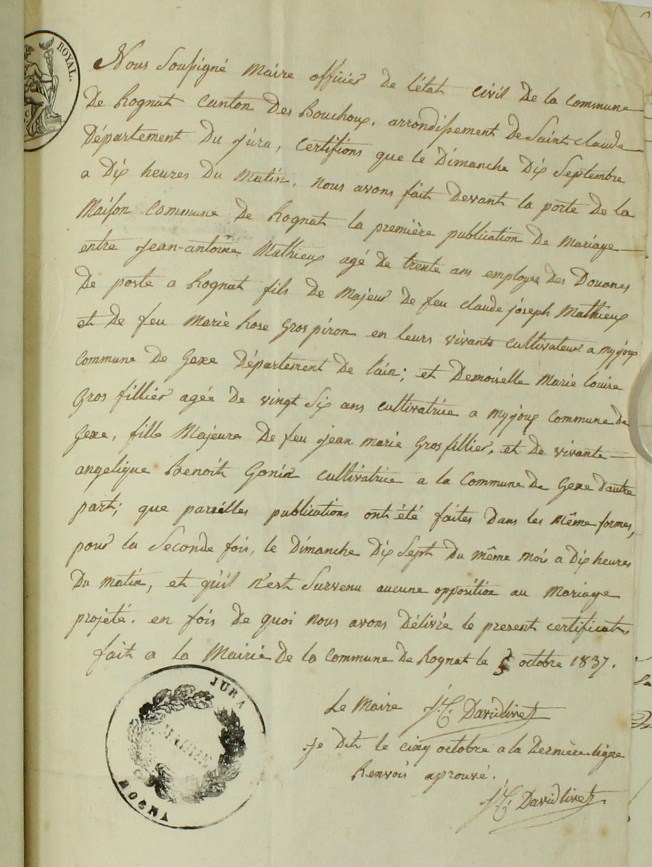 ROYAL.
Nous Soussigné Maire officier de l'état civil de la commune
De Rognat Canton Des Bouchoux, arrondissement de Saint Claude
Département Du Jura, Certifions que le Dimanche Dix Septembre
a Dix heures Du Matin, nous avons fait devant la porte de la
Maison Commune de Rognat la première publication De Mariage
entre Jean-antoine Mathieux agé de trente ans employée des Douanes
De poste a Rognat fils de Majeur de feu Claude joseph Mathieux
et De feu Marie Rose Grospiron en leurs vivants cultivateur a Myjoux
Commune De Gexe Département De l'ain; et Demoiselle Marie Louise
Gros fillier agée de vingt Six ans cultivatrice a Myjoux Commune de
Gexe, fille Majeure De feu Jean Marie Grosfillier, et de vivante
angelique Benoit Gonin cultivatrice a la Commune de Gexe d'autre
part; que pareilles publications ont été faites Dans les Même formes,
pour la Seconde fois, le Dimanche Dix Sept Du même mois a Dix heures
Du Matin, et qu'il n'est Survenu aucune opposition au Mariage
projeté. en fois de quoi nous avons Délivré le present certificat
fait a la Mairie De la Commune de Rognat le 5 octobre 1837.
JURA
MAIRIE
ROGNA
Le Maire J.C. Davidlivet
Je Dit le cinq octobre a la Dernière ligne
Renvois aprouvé.
J.C. Davidlivet